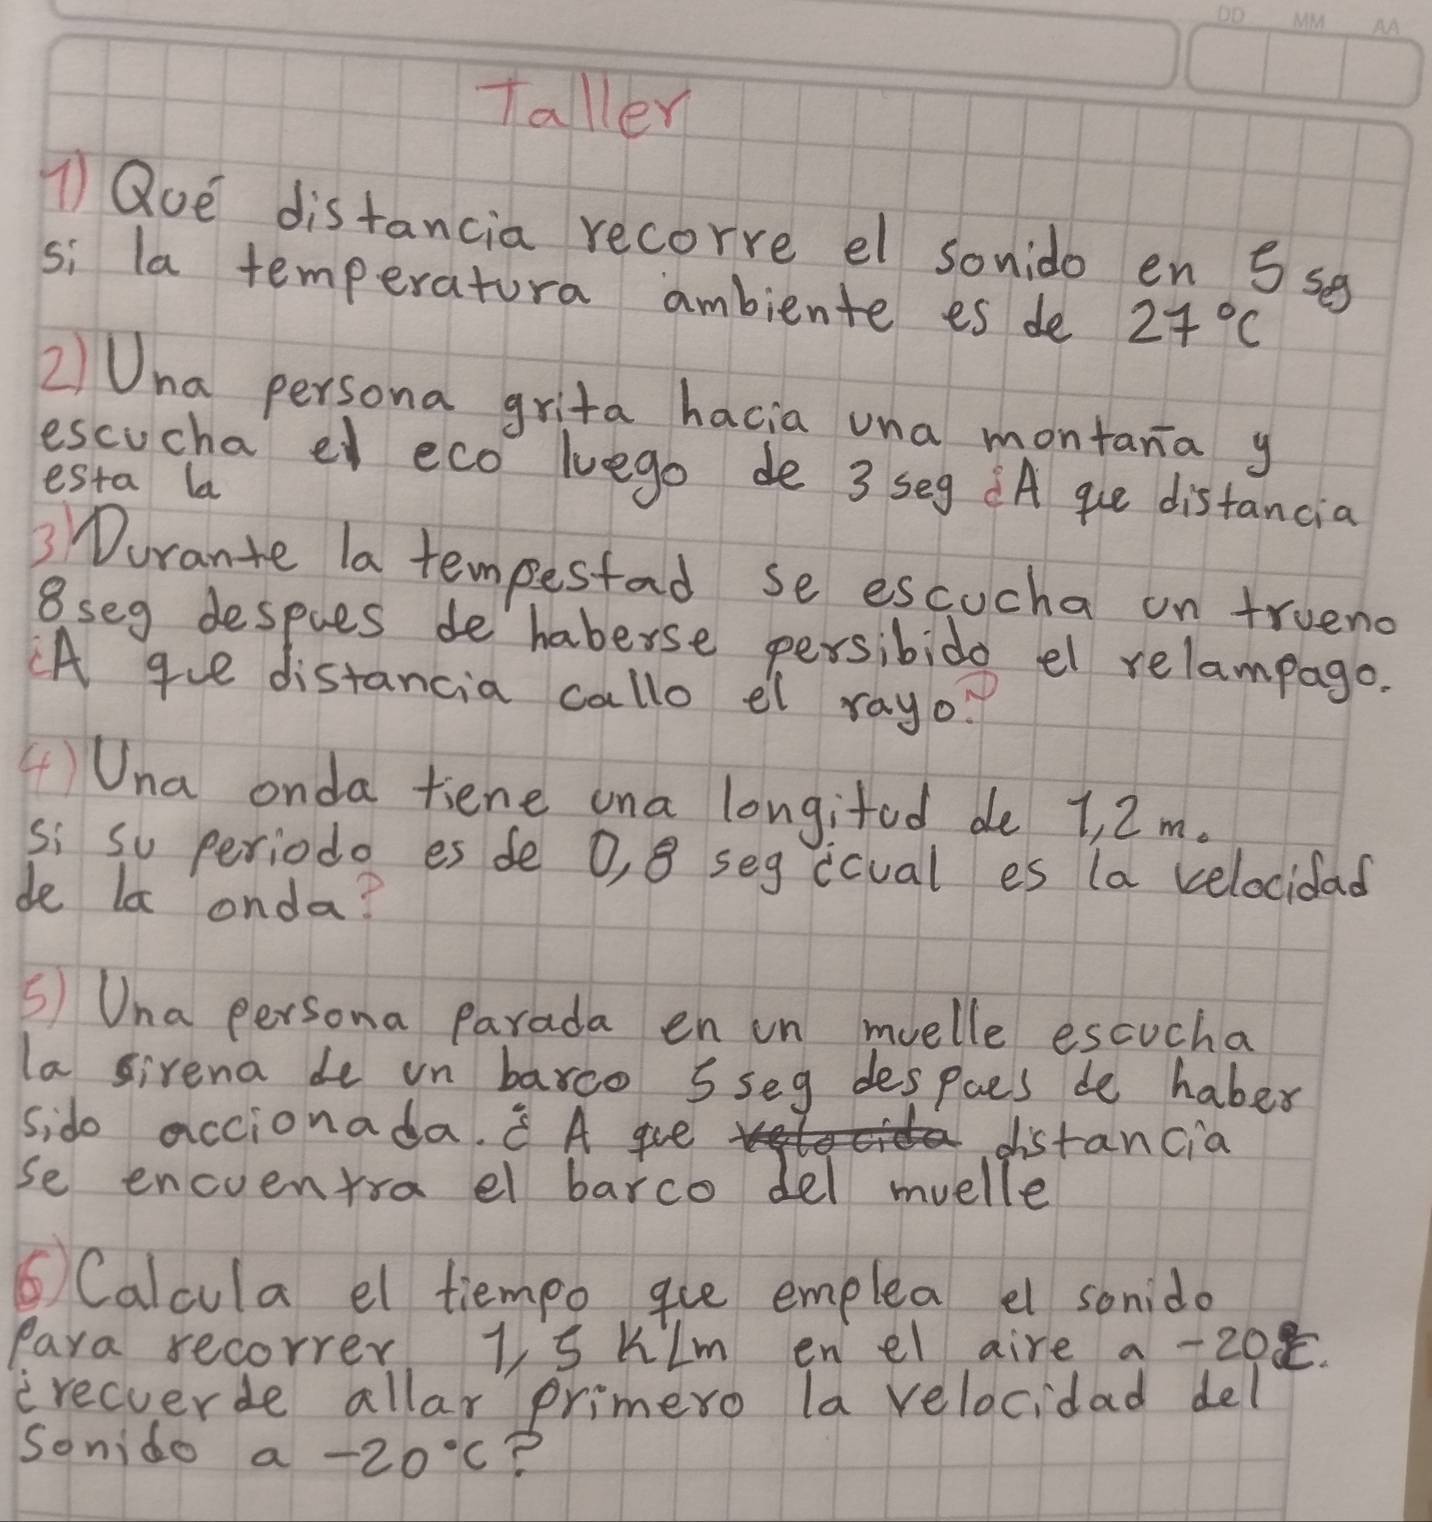 DD MM AA
Taller
1) Qué distancia recorre el sonido en 5 seg
si la temperatura ambiente es de 27°C
2) Una persona grita hacia una montaña y
escucha el eco luego de 3 seg ¿A que distancia
esta la
3) Durante la tempestad se escucha un trueno
8 seg despues de haberse persibido el relampago.
¿A que distancia callo el rayo?
4) Una onda tiene una longitud de 1,2 m.
si su periodo es de 0,8 seg ¿cual es la velocidad
de la onda?
5) Una persona parada en un muelle escucha
la sirena de un barco 5 seg despues de haber
sido accionada. ¿ A que velocida distancia
se encuentra el barco del muelle
6) Calcula el tiempo que emplea el sonido
para recorrer 1,5 K/m en el aire a -20°C.
¿recuerde allar primero la velocidad del
sonido a -20°C?